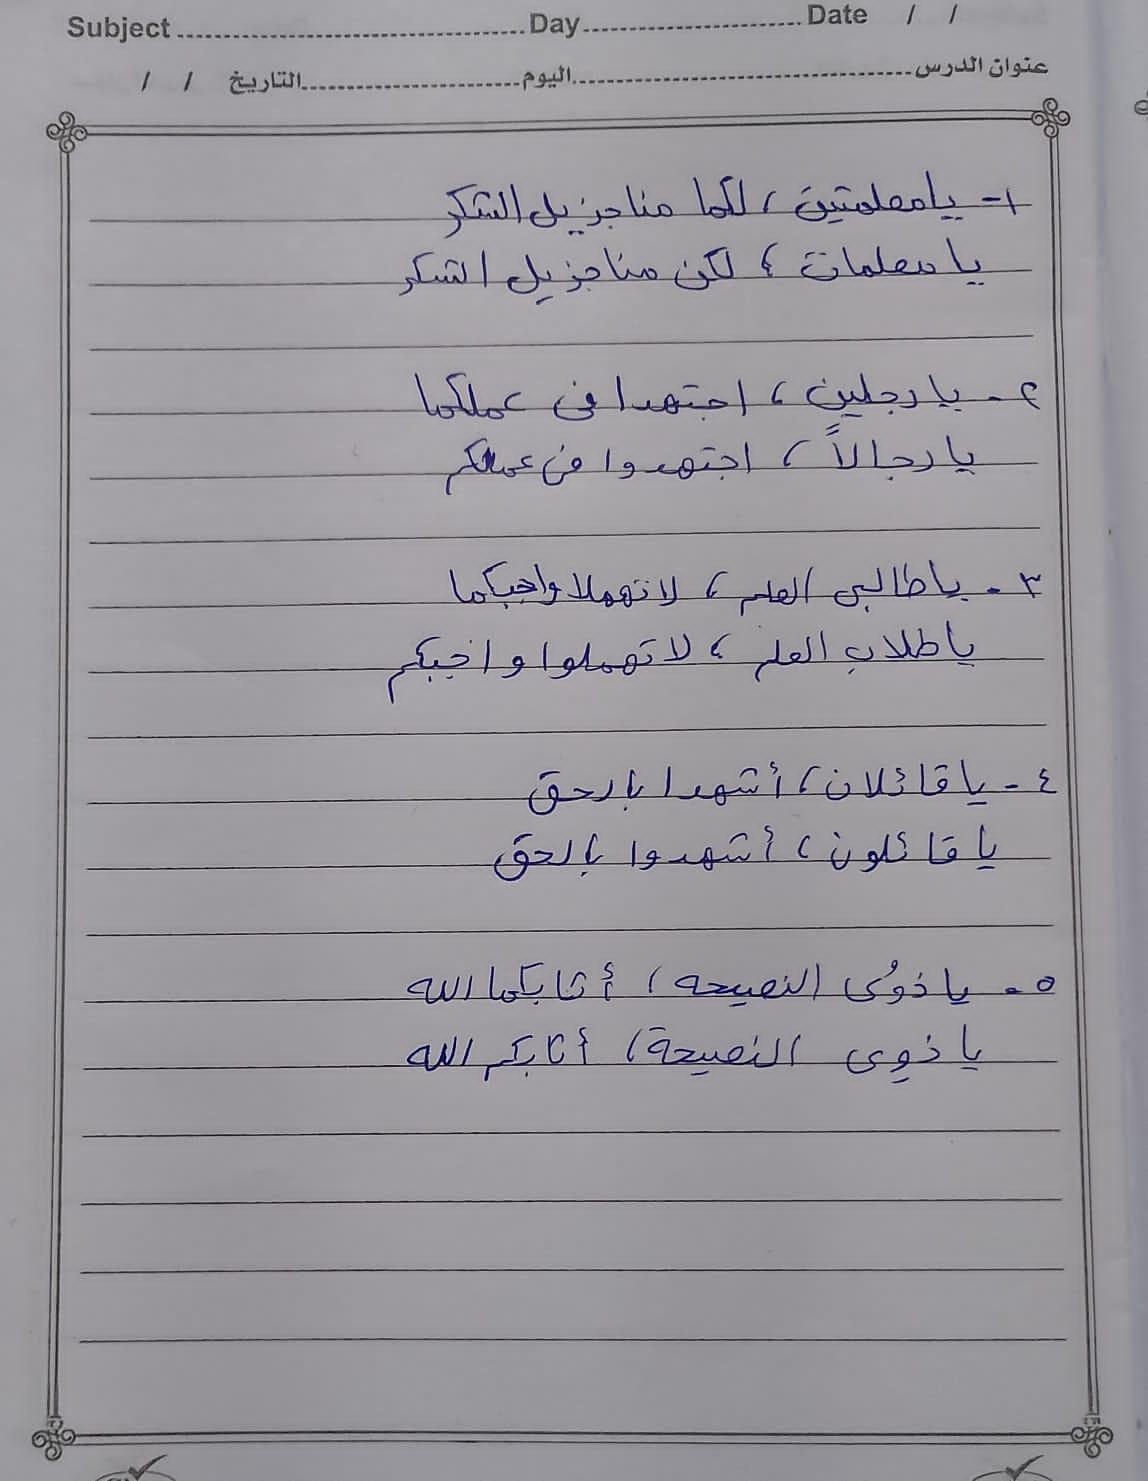 Subject ........ Day ........ Date / /
عنوان الدرس ........ اليوم ........ التاريخ / /
١- يا معلمتين، لكما منا جزيل الشكر
يا معلمات، لكن منا جزيل الشكر
٢- يا رجلين، اجتهدا في عملكما
يا رجالاً، اجتهدوا في عملكم
٣- يا طالبي العلم، لا تهملا واجبكما
يا طلاب العلم، لا تهملوا واجبكم
٤- يا قائلان، أشهدا بالحق
يا قائلون، أشهدوا بالحق
٥- يا ذوُى النصيحه، أثابكما الله
يا ذوِي النصيحة، أثابكم الله